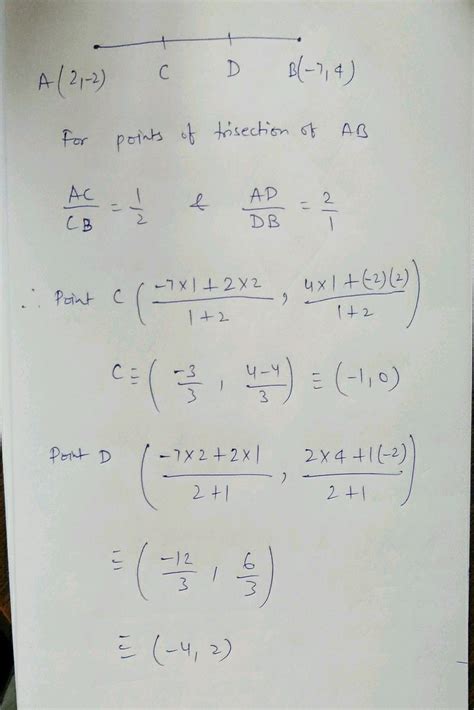 A(2,-2) C D B(-7,4)
For points of trisection of AB
AC/CB = 1/2 & AD/DB = 2/1
∴ Point C ( (-7×1+2×2)/(1+2) , (4×1+(-2)(2))/(1+2) )
C ≡ ( -3/3 , (4-4)/3 ) ≡ (-1,0)
Point D ( (-7×2+2×1)/(2+1) , (2×4+1(-2))/(2+1) )
≡ ( -12/3 , 6/3 )
≡ (-4, 2)